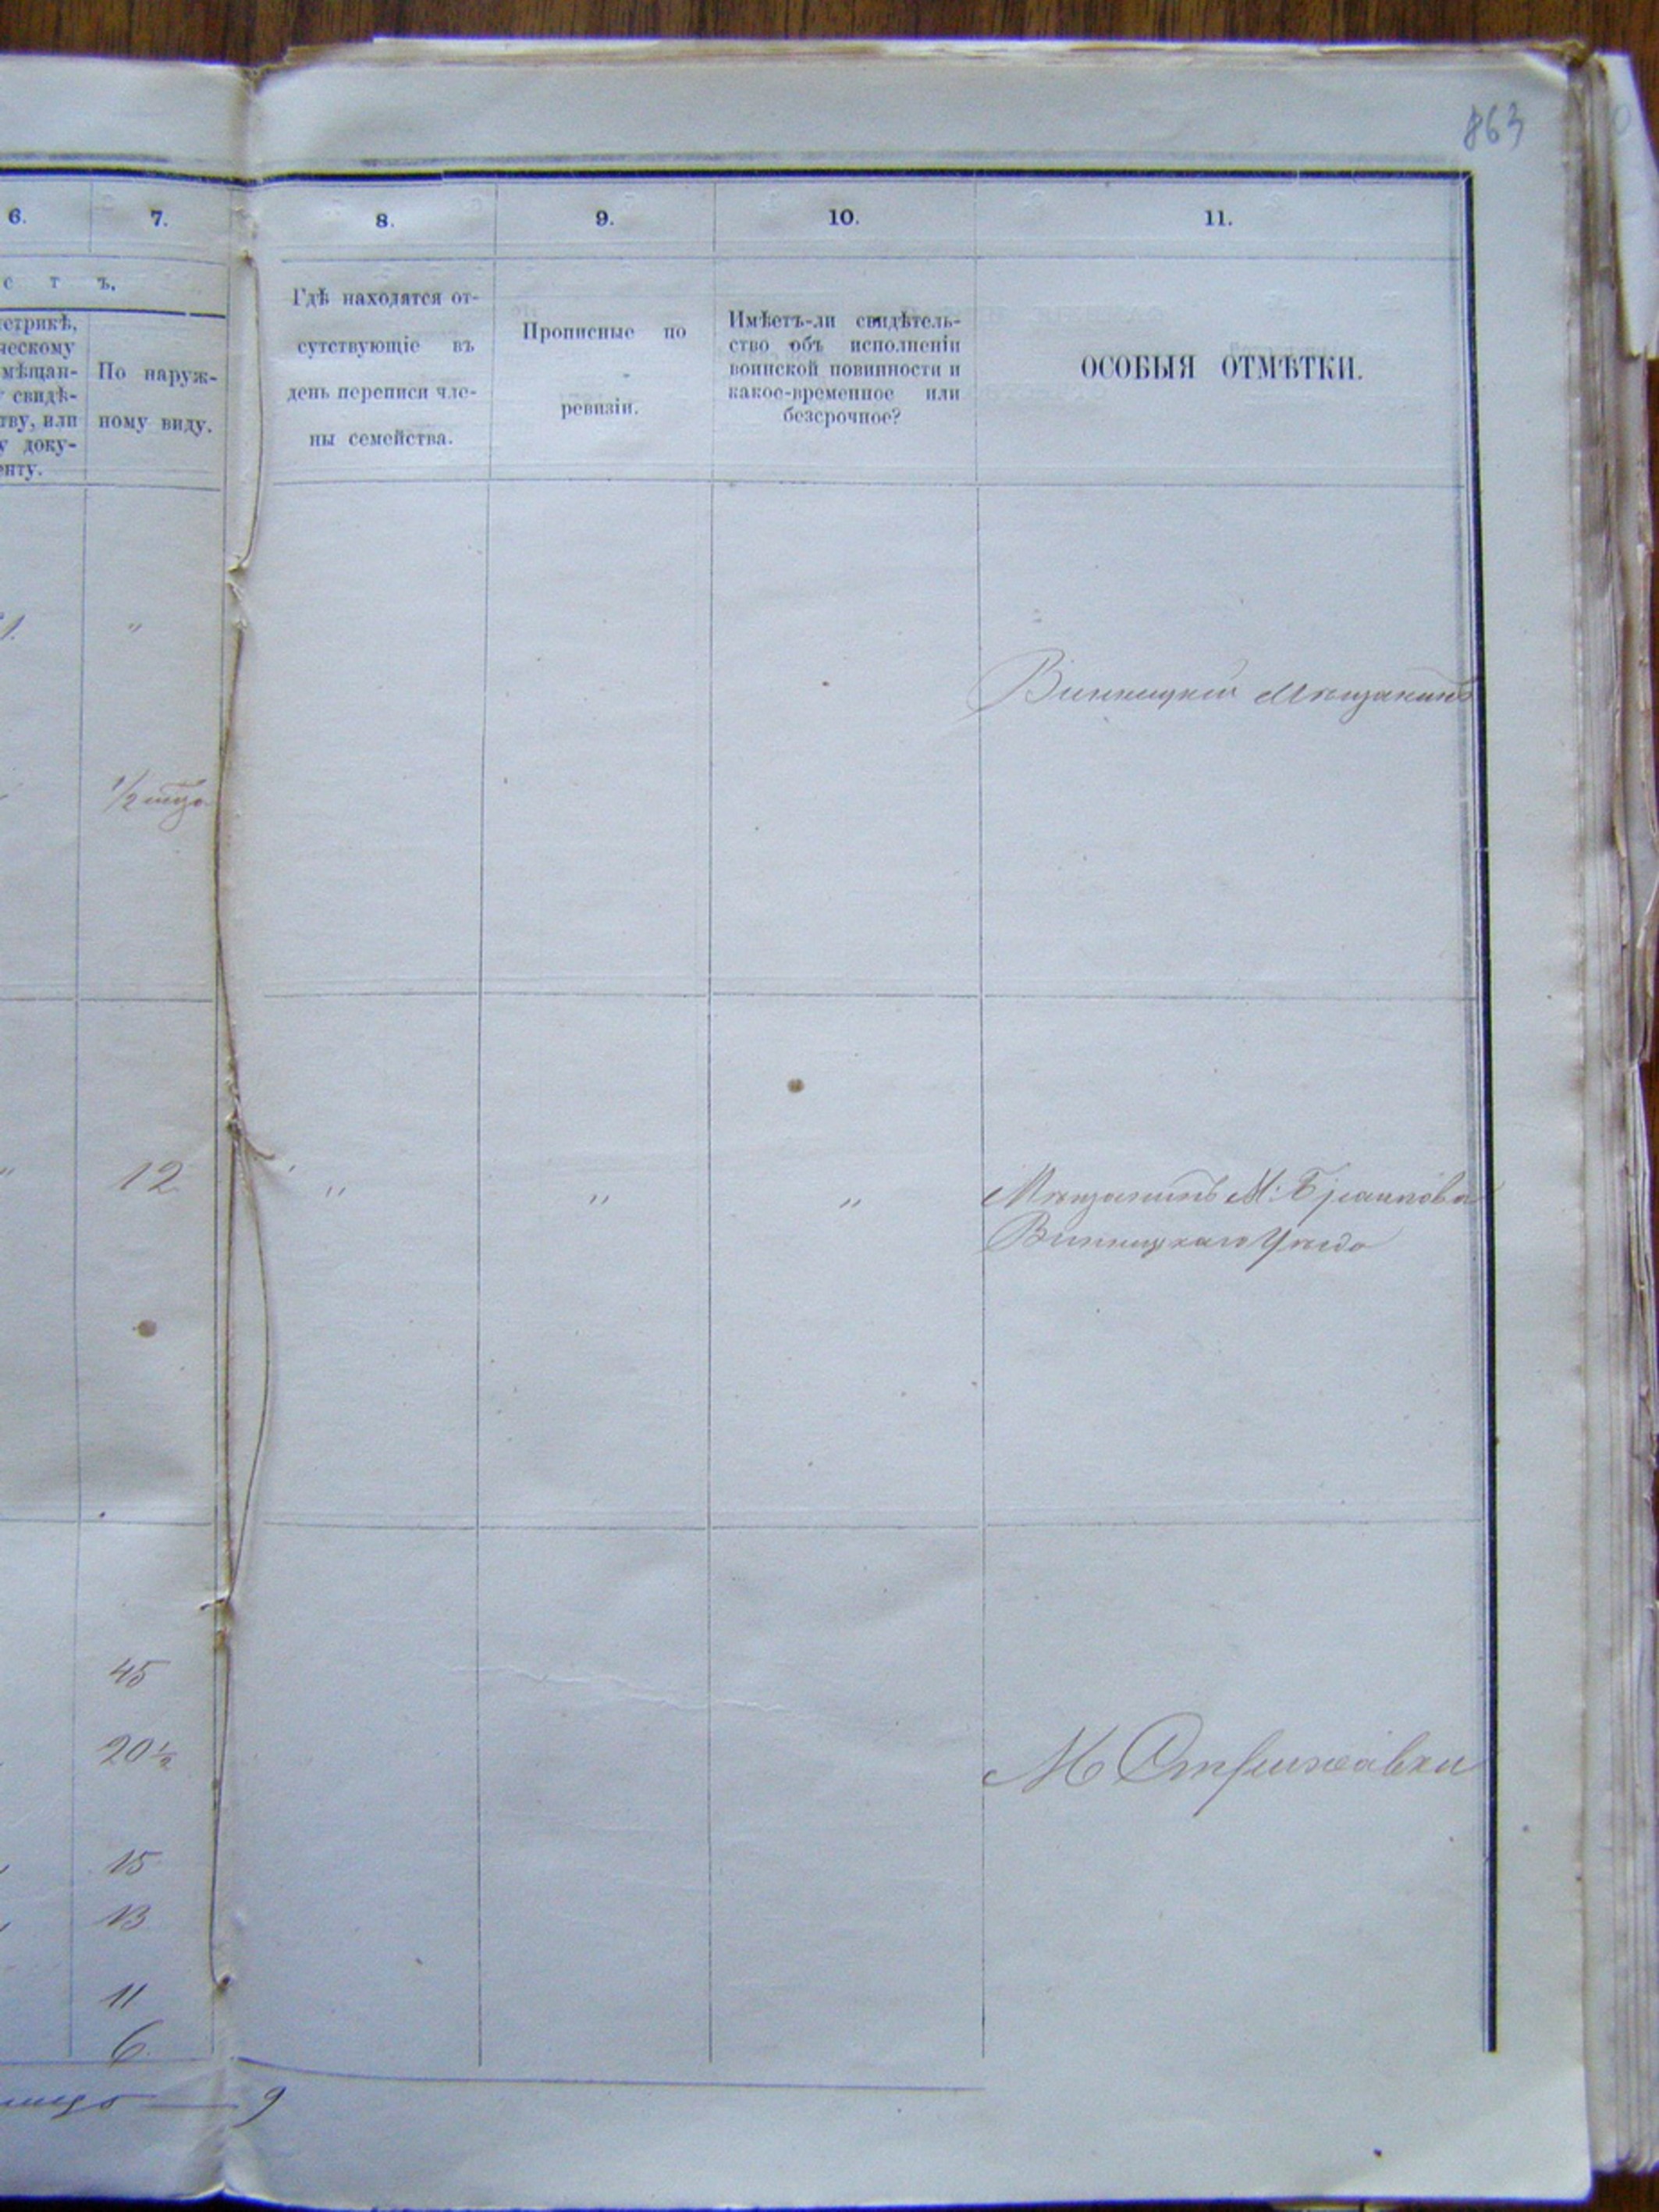 863
6.
7.
8.
9.
10.
11.
с т ъ.
етрикѣ,
ческому
мѣщан-
свидѣ-
тву, или
у доку-
енту.
По наруж-
ному виду.
Гдѣ находятся от-
сутствующіе въ
день переписи чле-
ны семейства.
Прописные по
ревизіи.
Имѣетъ-ли свидѣтель-
ство объ исполненіи
воинской повинности и
какое-временное или
безсрочное?
ОСОБЫЯ ОТМѢТКИ.
1. "
Винницкій Мѣщанинъ
1/2
" 12 " " "
Мѣщанинъ М. Браилова
Винницкаго Уѣзда
45
20 1/2
М Стрижавки
15
13
11
6
9